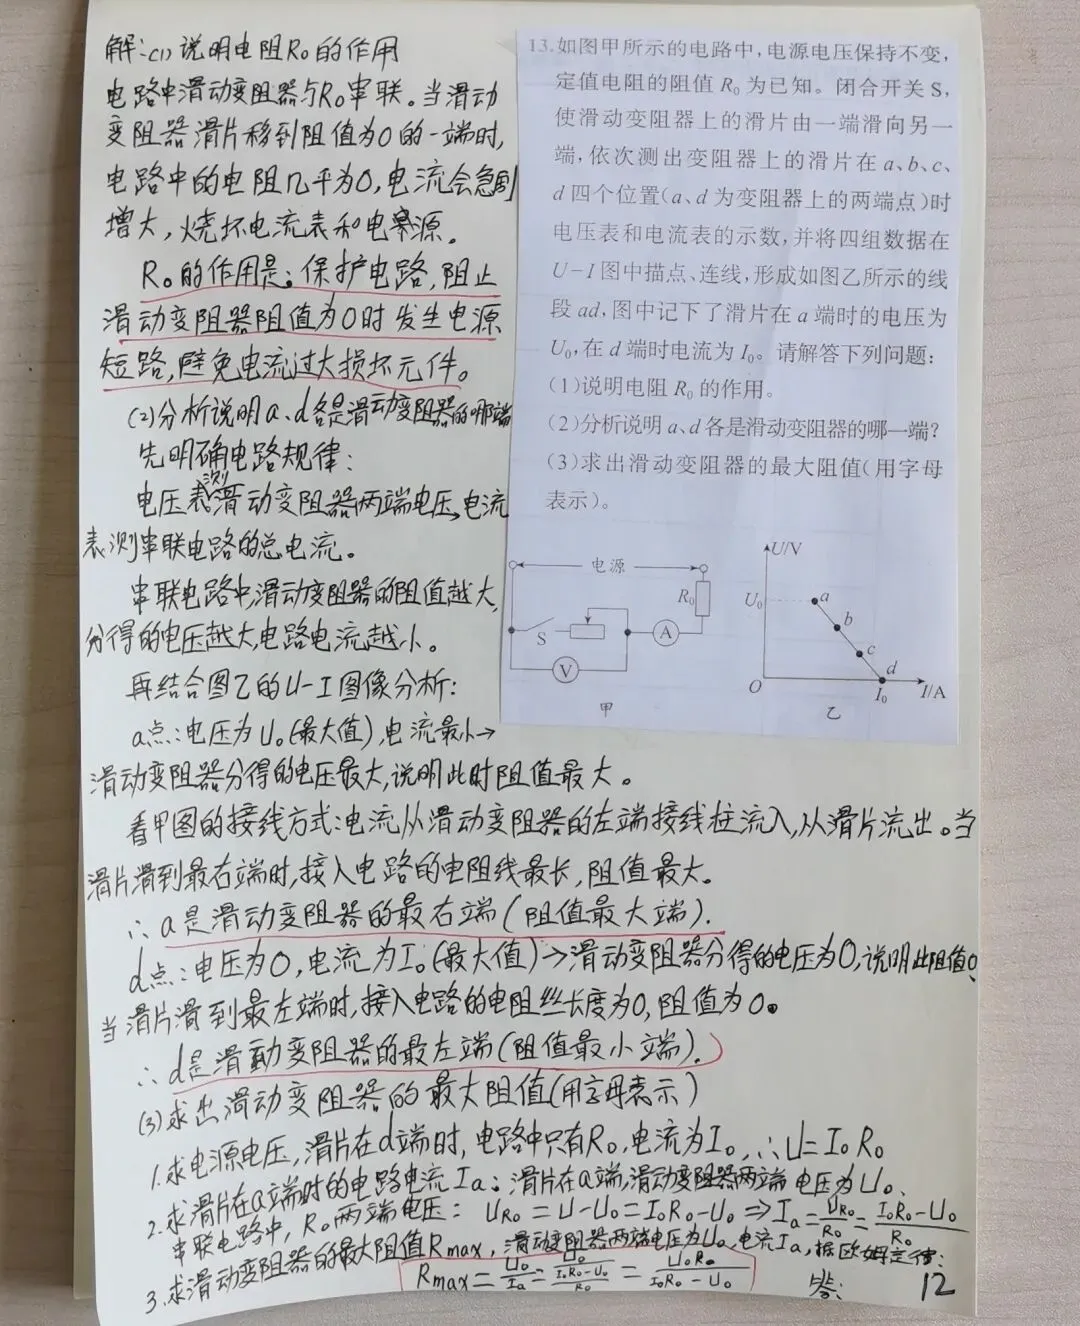 解:(1)说明电阻R₀的作用
电路中滑动变阻器与R₀串联。当滑动
变阻器滑片移到阻值为0的一端时,
电路中的电阻几乎为0,电流会急剧
增大,烧坏电流表和电源。
R₀的作用是:保护电路,阻止
滑动变阻器阻值为0时发生电源
短路,避免电流过大损坏元件。
(2)分析说明a、d各是滑动变阻器的哪端
先明确电路规律:
电压表测滑动变阻器两端电压,电流
表测串联电路的总电流。
串联电路中,滑动变阻器的阻值越大,
分得的电压越大,电路电流越小。
再结合图乙的U-I图像分析:
a点:电压为U₀(最大值),电流最小→
滑动变阻器分得的电压最大,说明此时阻值最大。
看甲图的接线方式:电流从滑动变阻器的左端接线柱流入,从滑片流出。当
滑片滑到最右端时,接入电路的电阻线最长,阻值最大。
∴a是滑动变阻器的最右端(阻值最大端).
d点:电压为0,电流为I₀(最大值)→滑动变阻器分得的电压为0,说明此阻值0、
当滑片滑到最左端时,接入电路的电阻丝长度为0,阻值为0。
∴d是滑動变阻器的最左端(阻值最小端).
(3)求出滑动变阻器的最大阻值(用字母表示)
1.求电源电压,滑片在d端时,电路中只有R₀,电流为I₀,∴U=I₀R₀
2.求滑片在a端时的电路电流Ia:滑片在a端,滑动变阻器两端电压为U₀、
串联电路中,R₀两端电压:U_R₀=U-U₀=I₀R₀-U₀⇒Ia=U_R₀/R₀=(I₀R₀-U₀)/R₀
3.求滑动变阻器的最大阻值Rmax,滑动变阻器两端电压为U₀、电流Ia,据欧姆定律:
Rmax=U₀/Ia=U₀/((I₀R₀-U₀)/R₀)=U₀R₀/(I₀R₀-U₀)
答:
12
13.如图甲所示的电路中,电源电压保持不变,
定值电阻的阻值R₀为已知。闭合开关S,
使滑动变阻器上的滑片由一端滑向另一
端,依次测出变阻器上的滑片在a、b、c、
d四个位置(a、d为变阻器上的两端点)时
电压表和电流表的示数,并将四组数据在
U-I图中描点、连线,形成如图乙所示的线
段ad,图中记下了滑片在a端时的电压为
U₀,在d端时电流为I₀。请解答下列问题:
(1)说明电阻R₀的作用。
(2)分析说明a、d各是滑动变阻器的哪一端?
(3)求出滑动变阻器的最大阻值(用字母
表示)。
电源
R₀
S
A
V
甲
U/V
U₀
a
b
c
d
O
I₀
I/A
乙